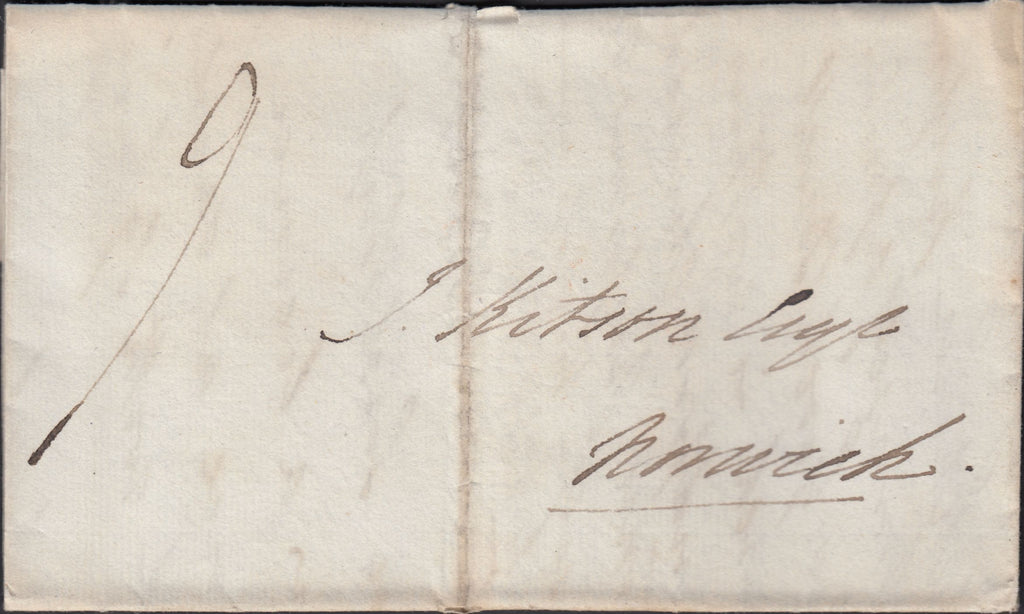 9
J. Kitson Esqe
Norwich.